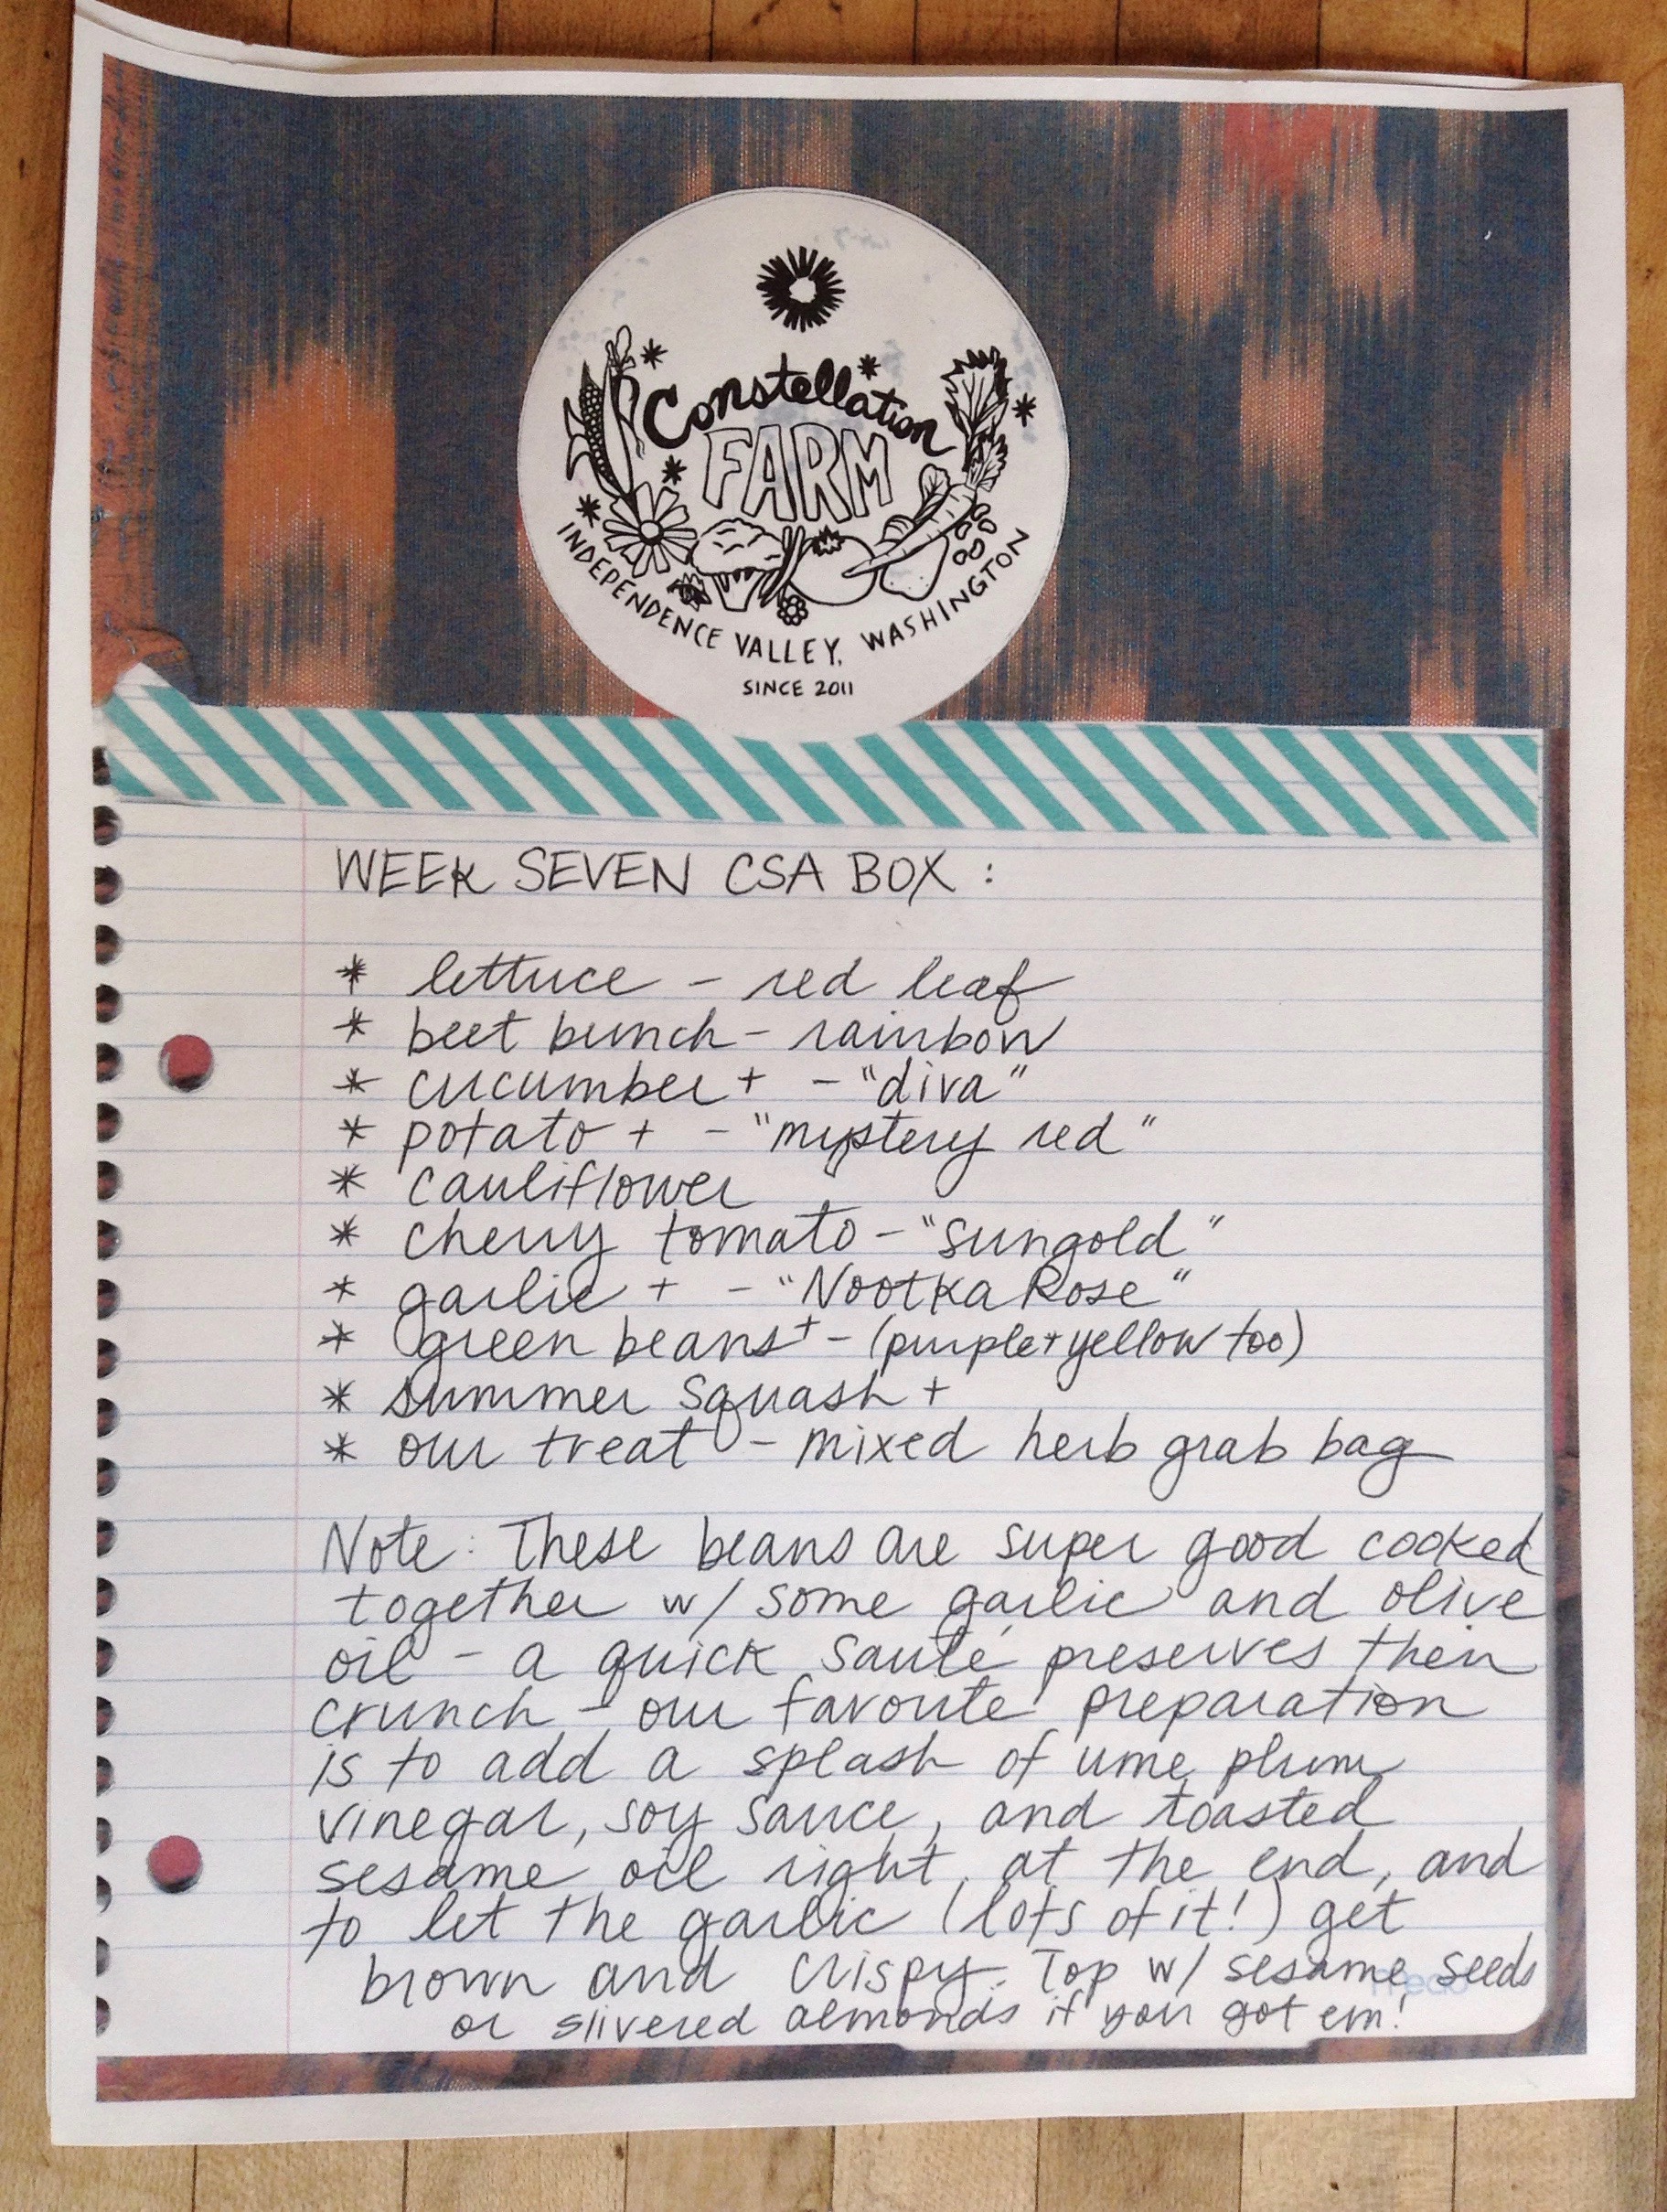 Constellation
FARM
INDEPENDENCE VALLEY, WASHINGTON
SINCE 2011
WEEK SEVEN CSA BOX :
* lettuce - red leaf
* beet bunch - rainbow
* cucumber + - "diva"
* potato + - "mystery red"
* cauliflower
* cherry tomato - "sungold"
* garlic + - "Nootka Rose"
* green beans + - (purple + yellow too)
* summer squash +
* our treat - mixed herb grab bag
Note: These beans are super good cooked
together w/ some garlic and olive
oil - a quick sauté preserves their
crunch - our favorite preparation
is to add a splash of ume plum
vinegar, soy sauce, and toasted
sesame oil right at the end, and
to let the garlic (lots of it!) get
brown and crispy. Top w/ sesame seeds
or slivered almonds if you got em!